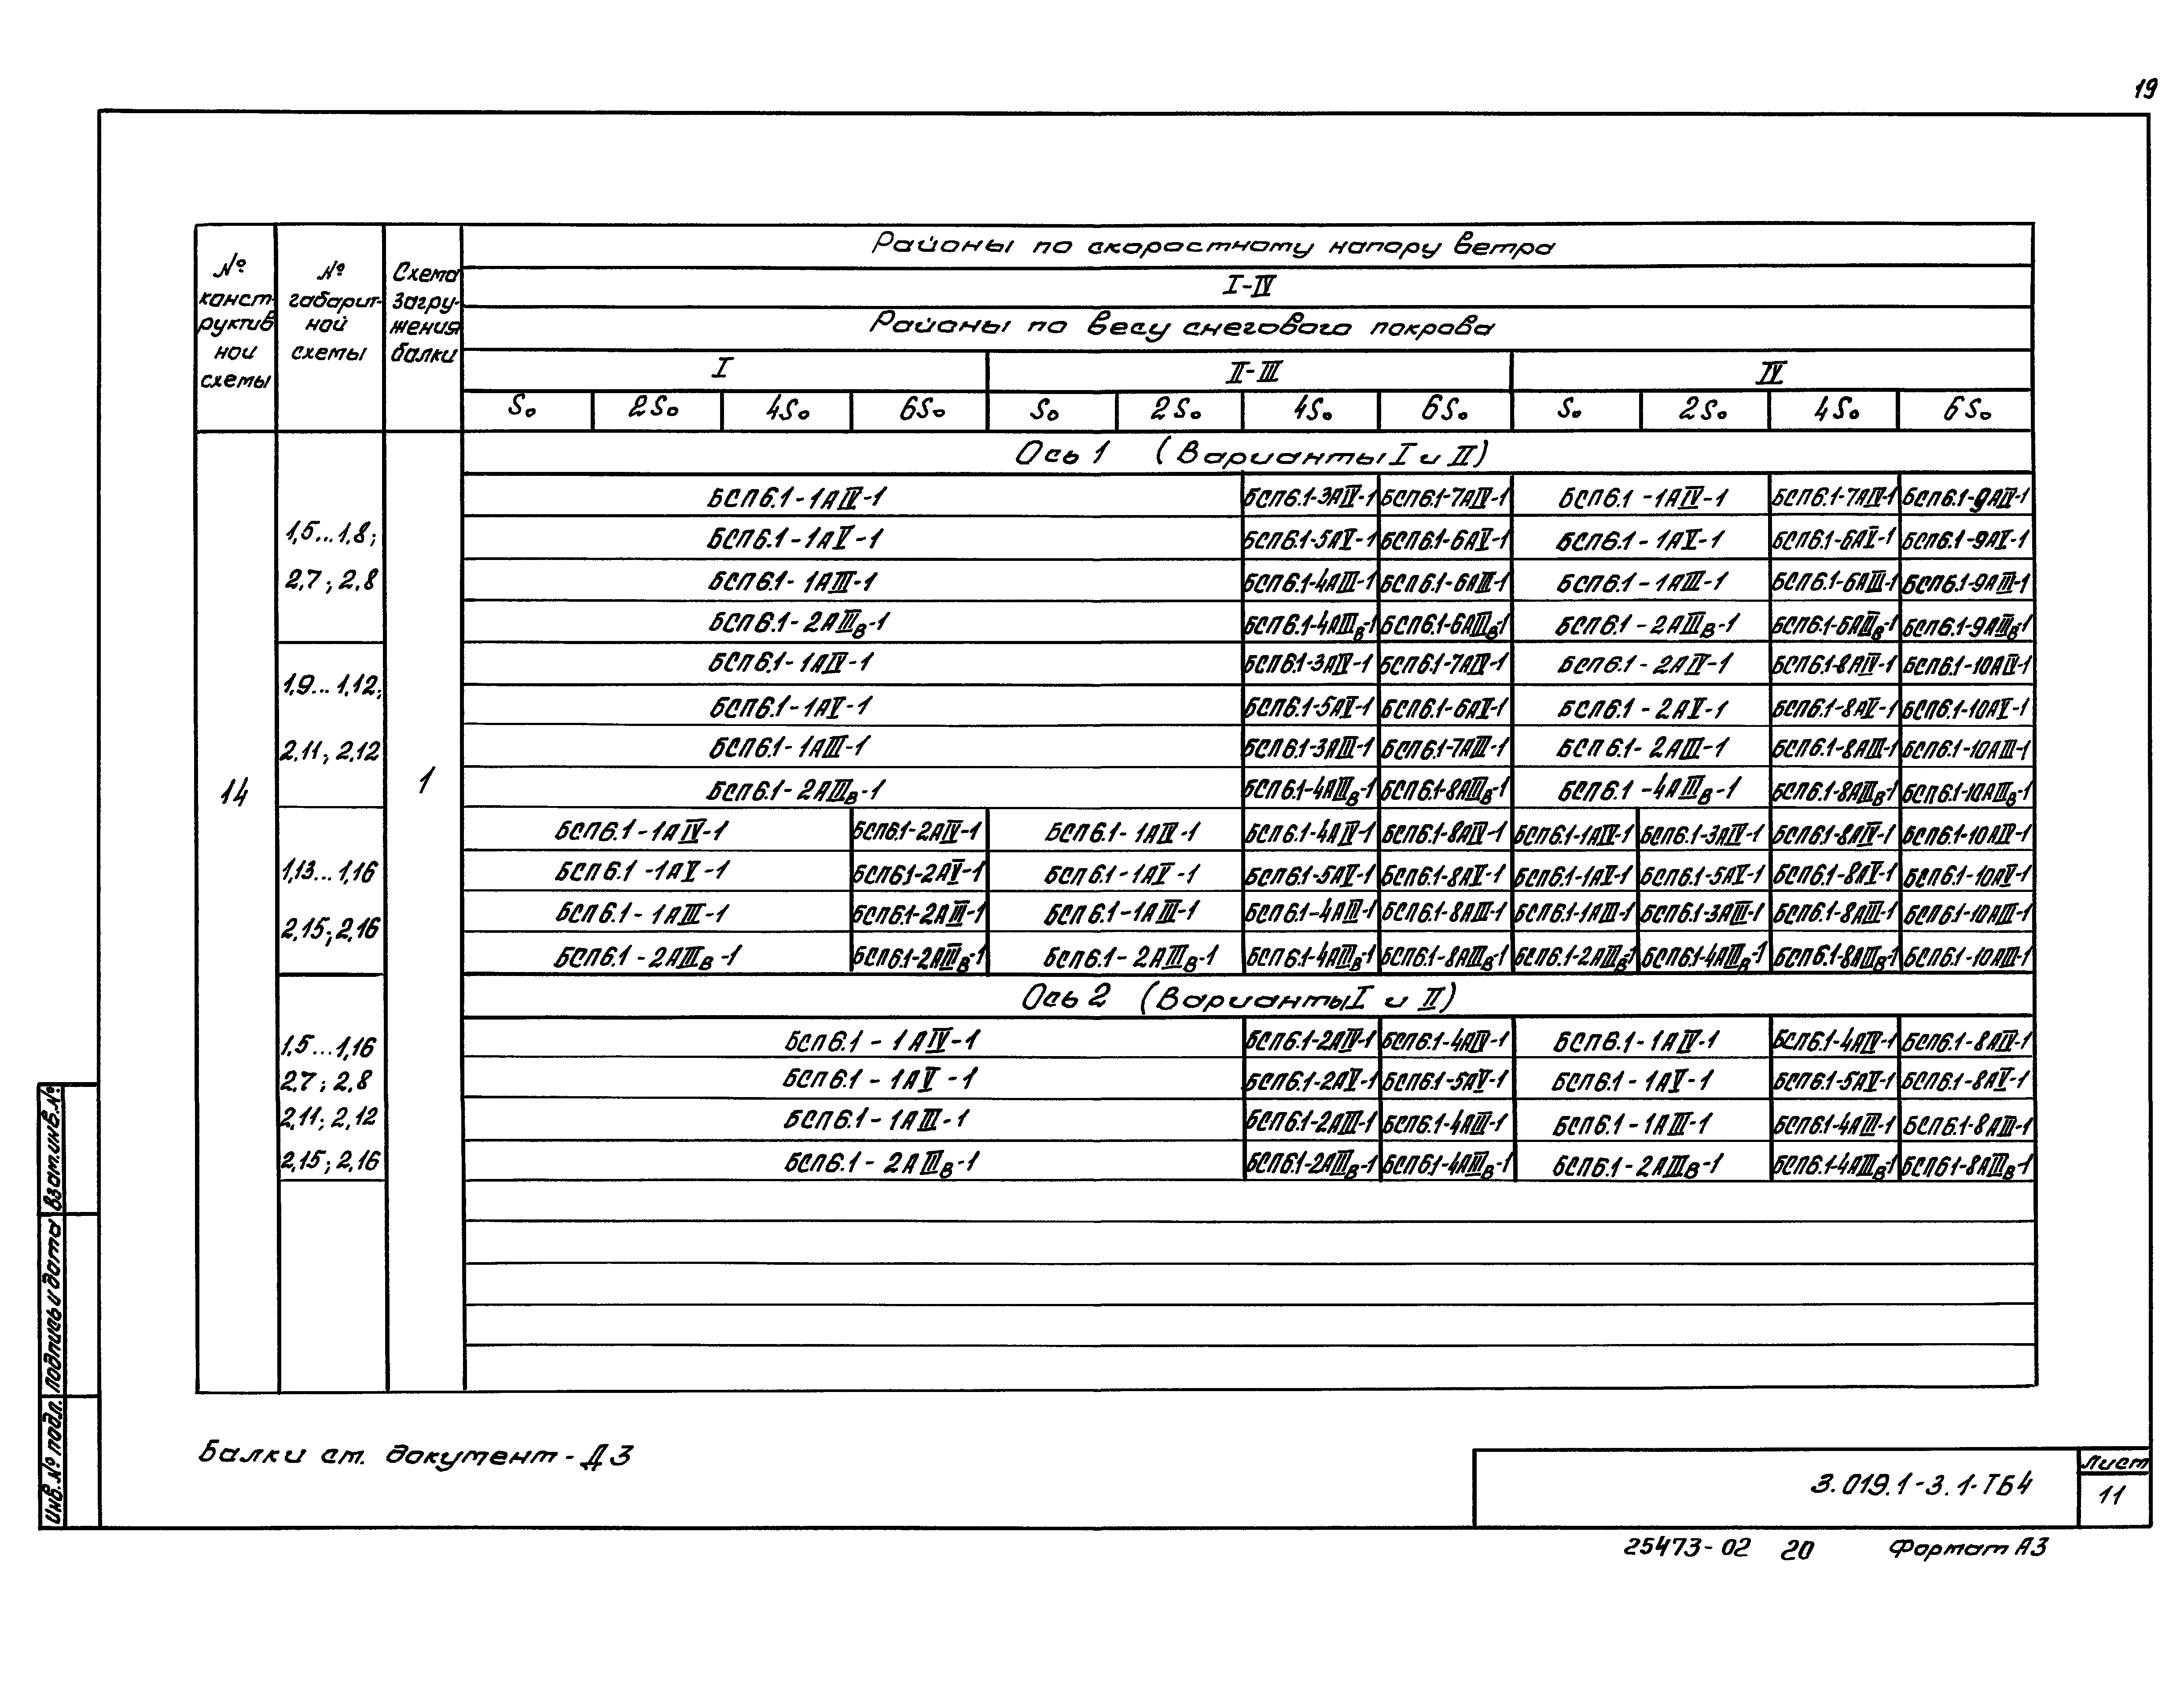 19
№ конст- руктив ной схемы
№ габарит- ной схемы
Схема загру- жения балки
Районы по скоростному напору ветра
I-IV
Районы по весу снегового покрова
I II-III IV
S₀ 2S₀ 4S₀ 6S₀ S₀ 2S₀ 4S₀ 6S₀ S₀ 2S₀ 4S₀ 6S₀
Ось 1 (Варианты I и II)
14
1
1,5...1,8;
2,7; 2,8
БСП6.1-1АIV-1 БСП6.1-3АIV-1 БСП6.1-7АIV-1 БСП6.1-1АIV-1 БСП6.1-7АIV-1 БСП6.1-9АIV-1
БСП6.1-1АV-1 БСП6.1-5АV-1 БСП6.1-6АV-1 БСП6.1-1АV-1 БСП6.1-6АV-1 БСП6.1-9АV-1
БСП6.1-1АIII-1 БСП6.1-4АIII-1 БСП6.1-6АIII-1 БСП6.1-1АIII-1 БСП6.1-6АIII-1 БСП6.1-9АIII-1
БСП6.1-2АIIIв-1 БСП6.1-4АIIIв-1 БСП6.1-6АIIIв-1 БСП6.1-2АIIIв-1 БСП6.1-6АIIIв-1 БСП6.1-9АIIIв-1
1,9...1,12;
2,11; 2,12
БСП6.1-1АIV-1 БСП6.1-3АIV-1 БСП6.1-7АIV-1 БСП6.1-2АIV-1 БСП6.1-8АIV-1 БСП6.1-10АIV-1
БСП6.1-1АV-1 БСП6.1-5АV-1 БСП6.1-6АV-1 БСП6.1-2АV-1 БСП6.1-8АV-1 БСП6.1-10АV-1
БСП6.1-1АIII-1 БСП6.1-3АIII-1 БСП6.1-7АIII-1 БСП6.1-2АIII-1 БСП6.1-8АIII-1 БСП6.1-10АIII-1
БСП6.1-2АIIIв-1 БСП6.1-4АIIIв-1 БСП6.1-8АIIIв-1 БСП6.1-4АIIIв-1 БСП6.1-8АIIIв-1 БСП6.1-10АIIIв-1
1,13...1,16
2,15; 2,16
БСП6.1-1АIV-1 БСП6.1-2АIV-1 БСП6.1-1АIV-1 БСП6.1-4АIV-1 БСП6.1-8АIV-1 БСП6.1-1АIV-1 БСП6.1-3АIV-1 БСП6.1-8АIV-1 БСП6.1-10АIV-1
БСП6.1-1АV-1 БСП6.1-2АV-1 БСП6.1-1АV-1 БСП6.1-5АV-1 БСП6.1-8АV-1 БСП6.1-1АV-1 БСП6.1-5АV-1 БСП6.1-8АV-1 БСП6.1-10АV-1
БСП6.1-1АIII-1 БСП6.1-2АIII-1 БСП6.1-1АIII-1 БСП6.1-4АIII-1 БСП6.1-8АIII-1 БСП6.1-1АIII-1 БСП6.1-3АIII-1 БСП6.1-8АIII-1 БСП6.1-10АIII-1
БСП6.1-2АIIIв-1 БСП6.1-2АIIIв-1 БСП6.1-2АIIIв-1 БСП6.1-4АIIIв-1 БСП6.1-8АIIIв-1 БСП6.1-2АIIIв-1 БСП6.1-4АIIIв-1 БСП6.1-8АIIIв-1 БСП6.1-10АIII-1
Ось 2 (Варианты I и II)
1,5...1,16
2,7; 2,8
2,11; 2,12
2,15; 2,16
БСП6.1-1АIV-1 БСП6.1-2АIV-1 БСП6.1-4АIV-1 БСП6.1-1АIV-1 БСП6.1-4АIV-1 БСП6.1-8АIV-1
БСП6.1-1АV-1 БСП6.1-2АV-1 БСП6.1-5АV-1 БСП6.1-1АV-1 БСП6.1-5АV-1 БСП6.1-8АV-1
БСП6.1-1АIII-1 БСП6.1-2АIII-1 БСП6.1-4АIII-1 БСП6.1-1АIII-1 БСП6.1-4АIII-1 БСП6.1-8АIII-1
БСП6.1-2АIIIв-1 БСП6.1-2АIIIв-1 БСП6.1-4АIIIв-1 БСП6.1-2АIIIв-1 БСП6.1-4АIIIв-1 БСП6.1-8АIIIв-1
Балки см. документ-Д3
3.019.1-3.1-ТБ4
Лист
11
25473-02 20 Формат А3
Взам.инв.№
Подпись и дата
Инв.№ подл.